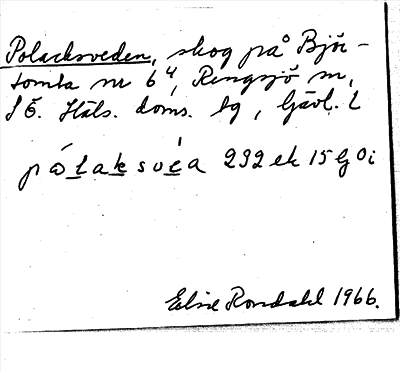 Polacksveden, skog på Björ-
tomta nr 6⁴, Rengsjö sn,
S Ö. Häls. doms. bg, Gävl. l
påłaksvéa 292 ek 15 G 0 i
Elsie Rondahl 1966.